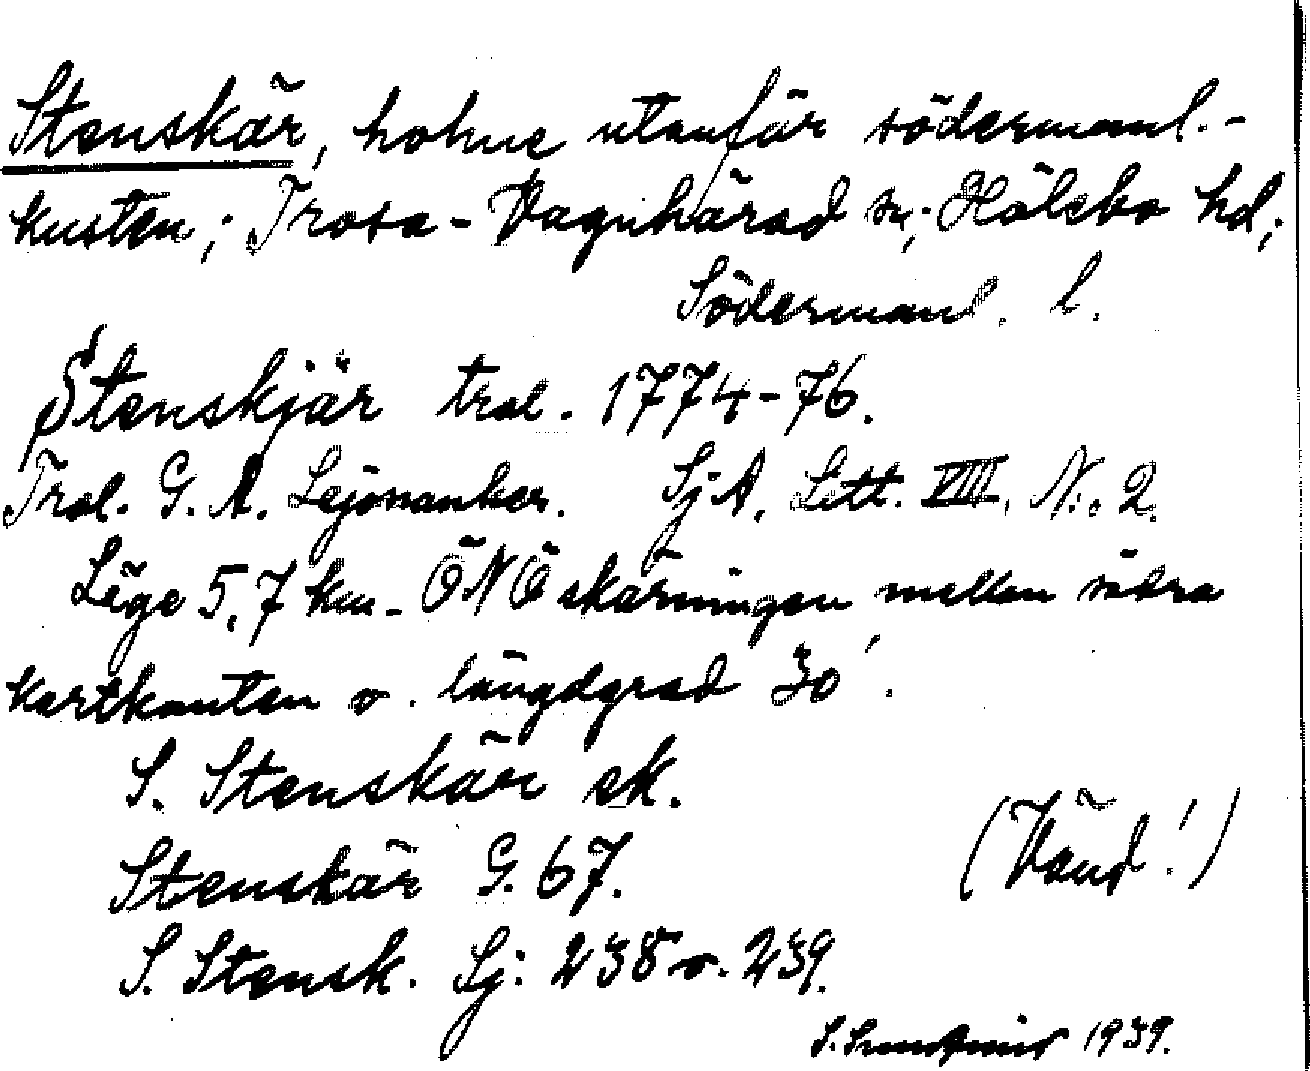 Stenskär, holme utanför södermanl.-
kusten; Trosa-Vagnhärad sn; Hölebo hd;
Södermanl. l.
Stenskjär trol. 1774-76.
Trol. G. A. Lejonanker. SjA, Litt. VIII, N:o 2.
Läge 5,7 km - ÖNÖ skärningen mellan södra
kartkanten o. längdgrad 30'.
S. Stenskär ek.
Stenskär G. 67.
S. Stensk. Sj: 238 o. 239.
(Vänd!)
S. 1939.